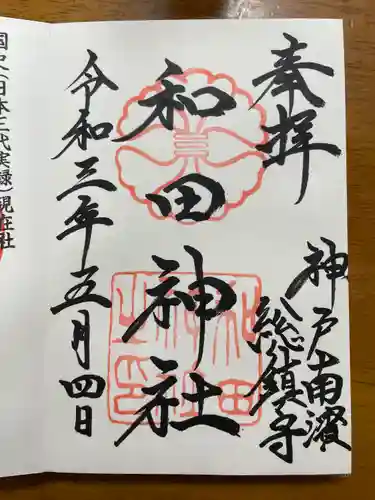 奉拝
神戸南濱
総鎮守
和田神社
和田神社之印
令和三年五月四日
国史(日本三代実録)現在社